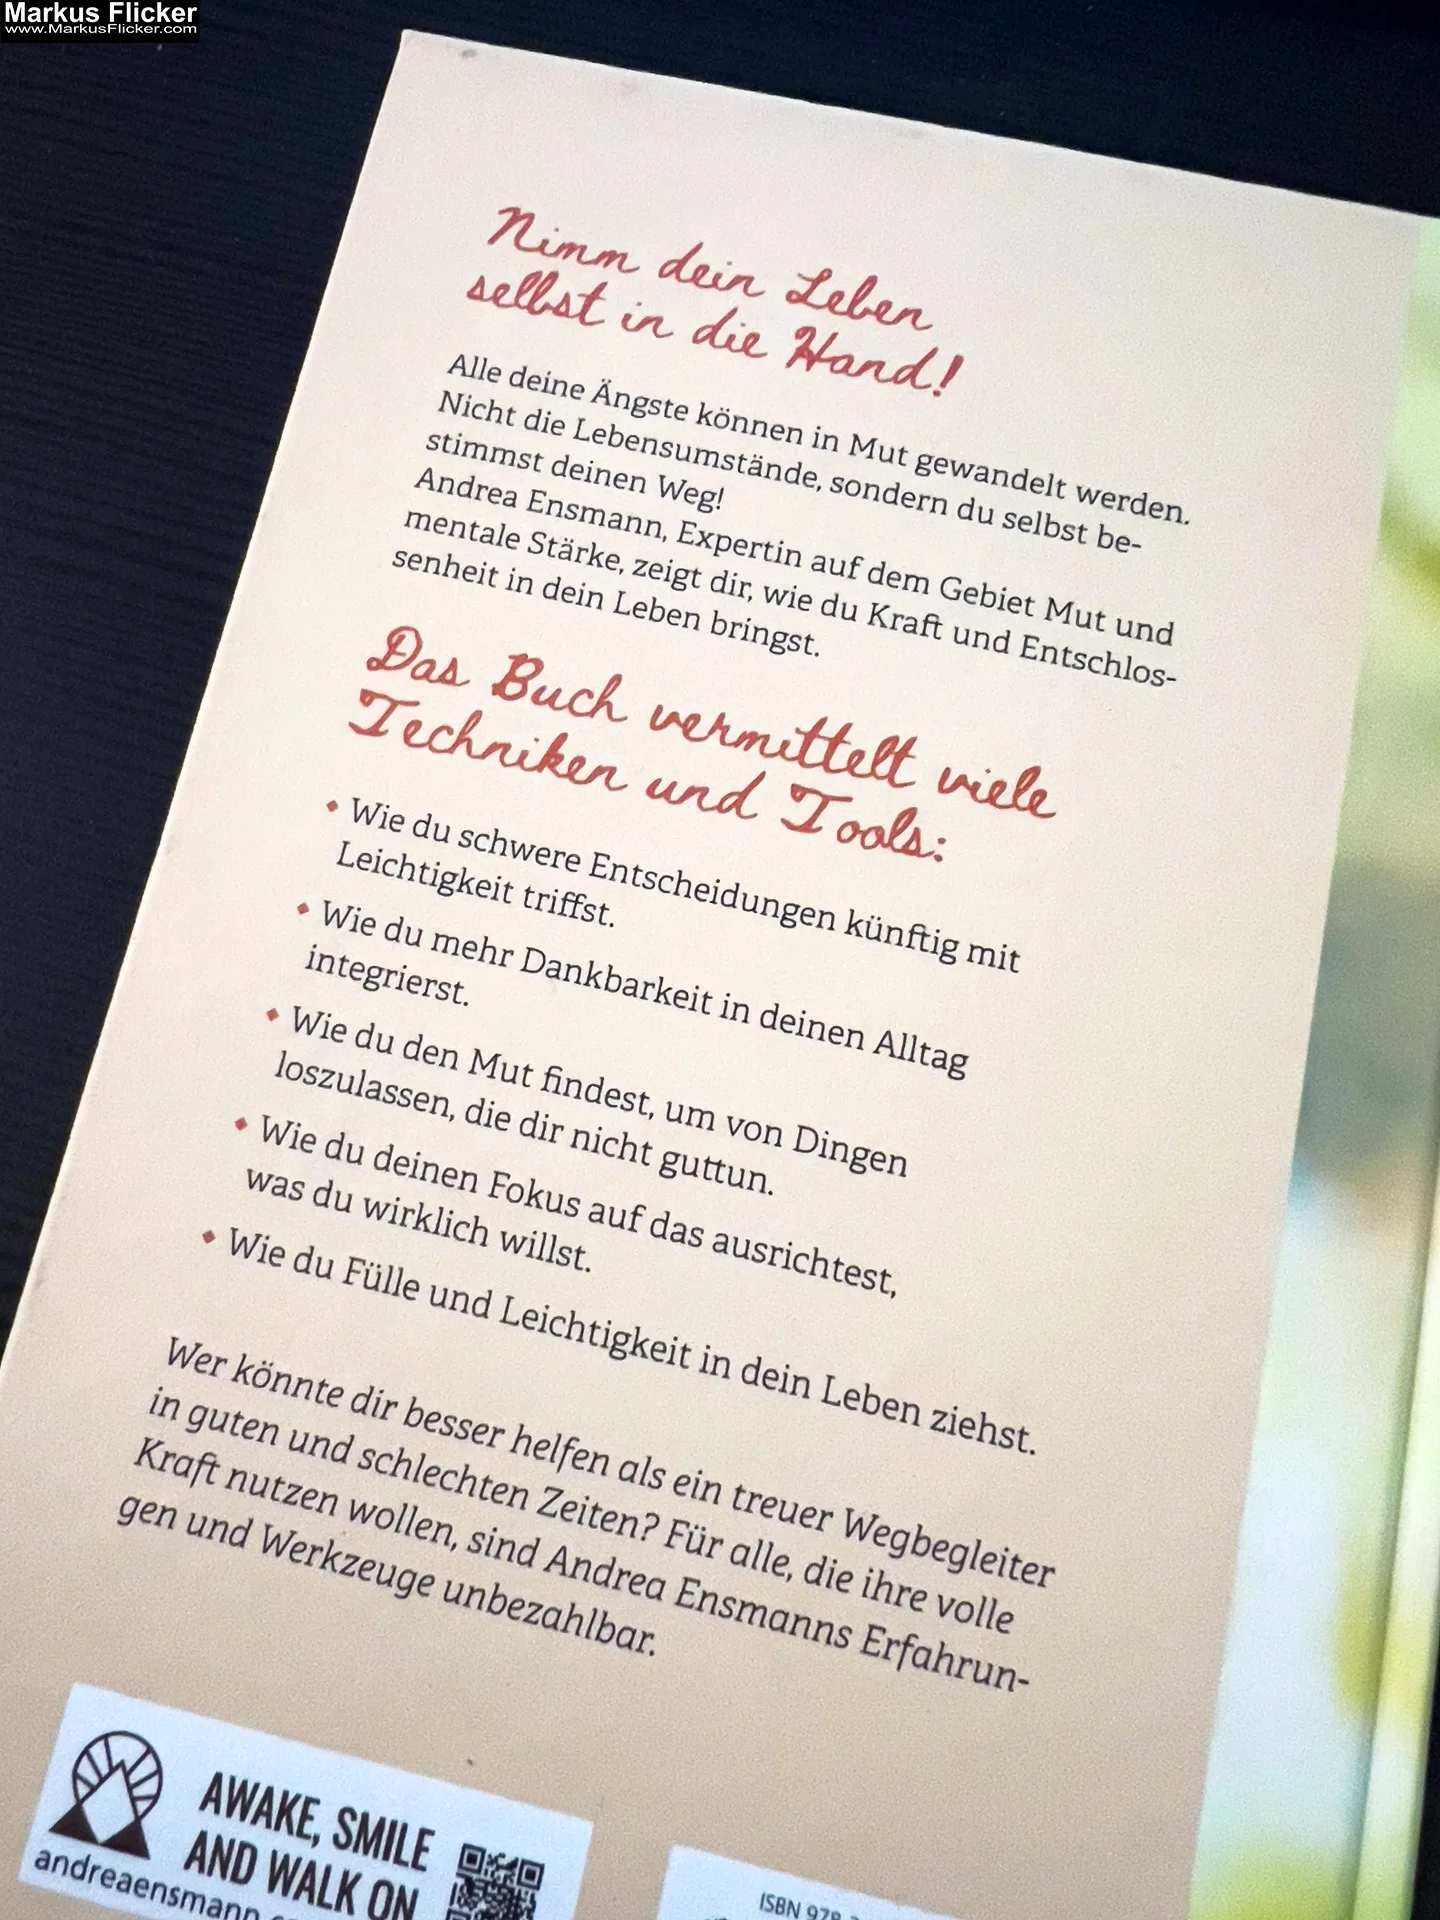 Markus Flicker
www.MarkusFlicker.com
Nimm dein Leben
selbst in die Hand!
Alle deine Ängste können in Mut gewandelt werden.
Nicht die Lebensumstände, sondern du selbst be-
stimmst deinen Weg!
Andrea Ensmann, Expertin auf dem Gebiet Mut und
mentale Stärke, zeigt dir, wie du Kraft und Entschlos-
senheit in dein Leben bringst.
Das Buch vermittelt viele
Techniken und Tools:
• Wie du schwere Entscheidungen künftig mit
Leichtigkeit triffst.
• Wie du mehr Dankbarkeit in deinen Alltag
integrierst.
• Wie du den Mut findest, um von Dingen
loszulassen, die dir nicht guttun.
• Wie du deinen Fokus auf das ausrichtest,
was du wirklich willst.
• Wie du Fülle und Leichtigkeit in dein Leben ziehst.
Wer könnte dir besser helfen als ein treuer Wegbegleiter
in guten und schlechten Zeiten? Für alle, die ihre volle
Kraft nutzen wollen, sind Andrea Ensmanns Erfahrun-
gen und Werkzeuge unbezahlbar.
AWAKE, SMILE
AND WALK ON
andreaensmann.
ISBN 978-